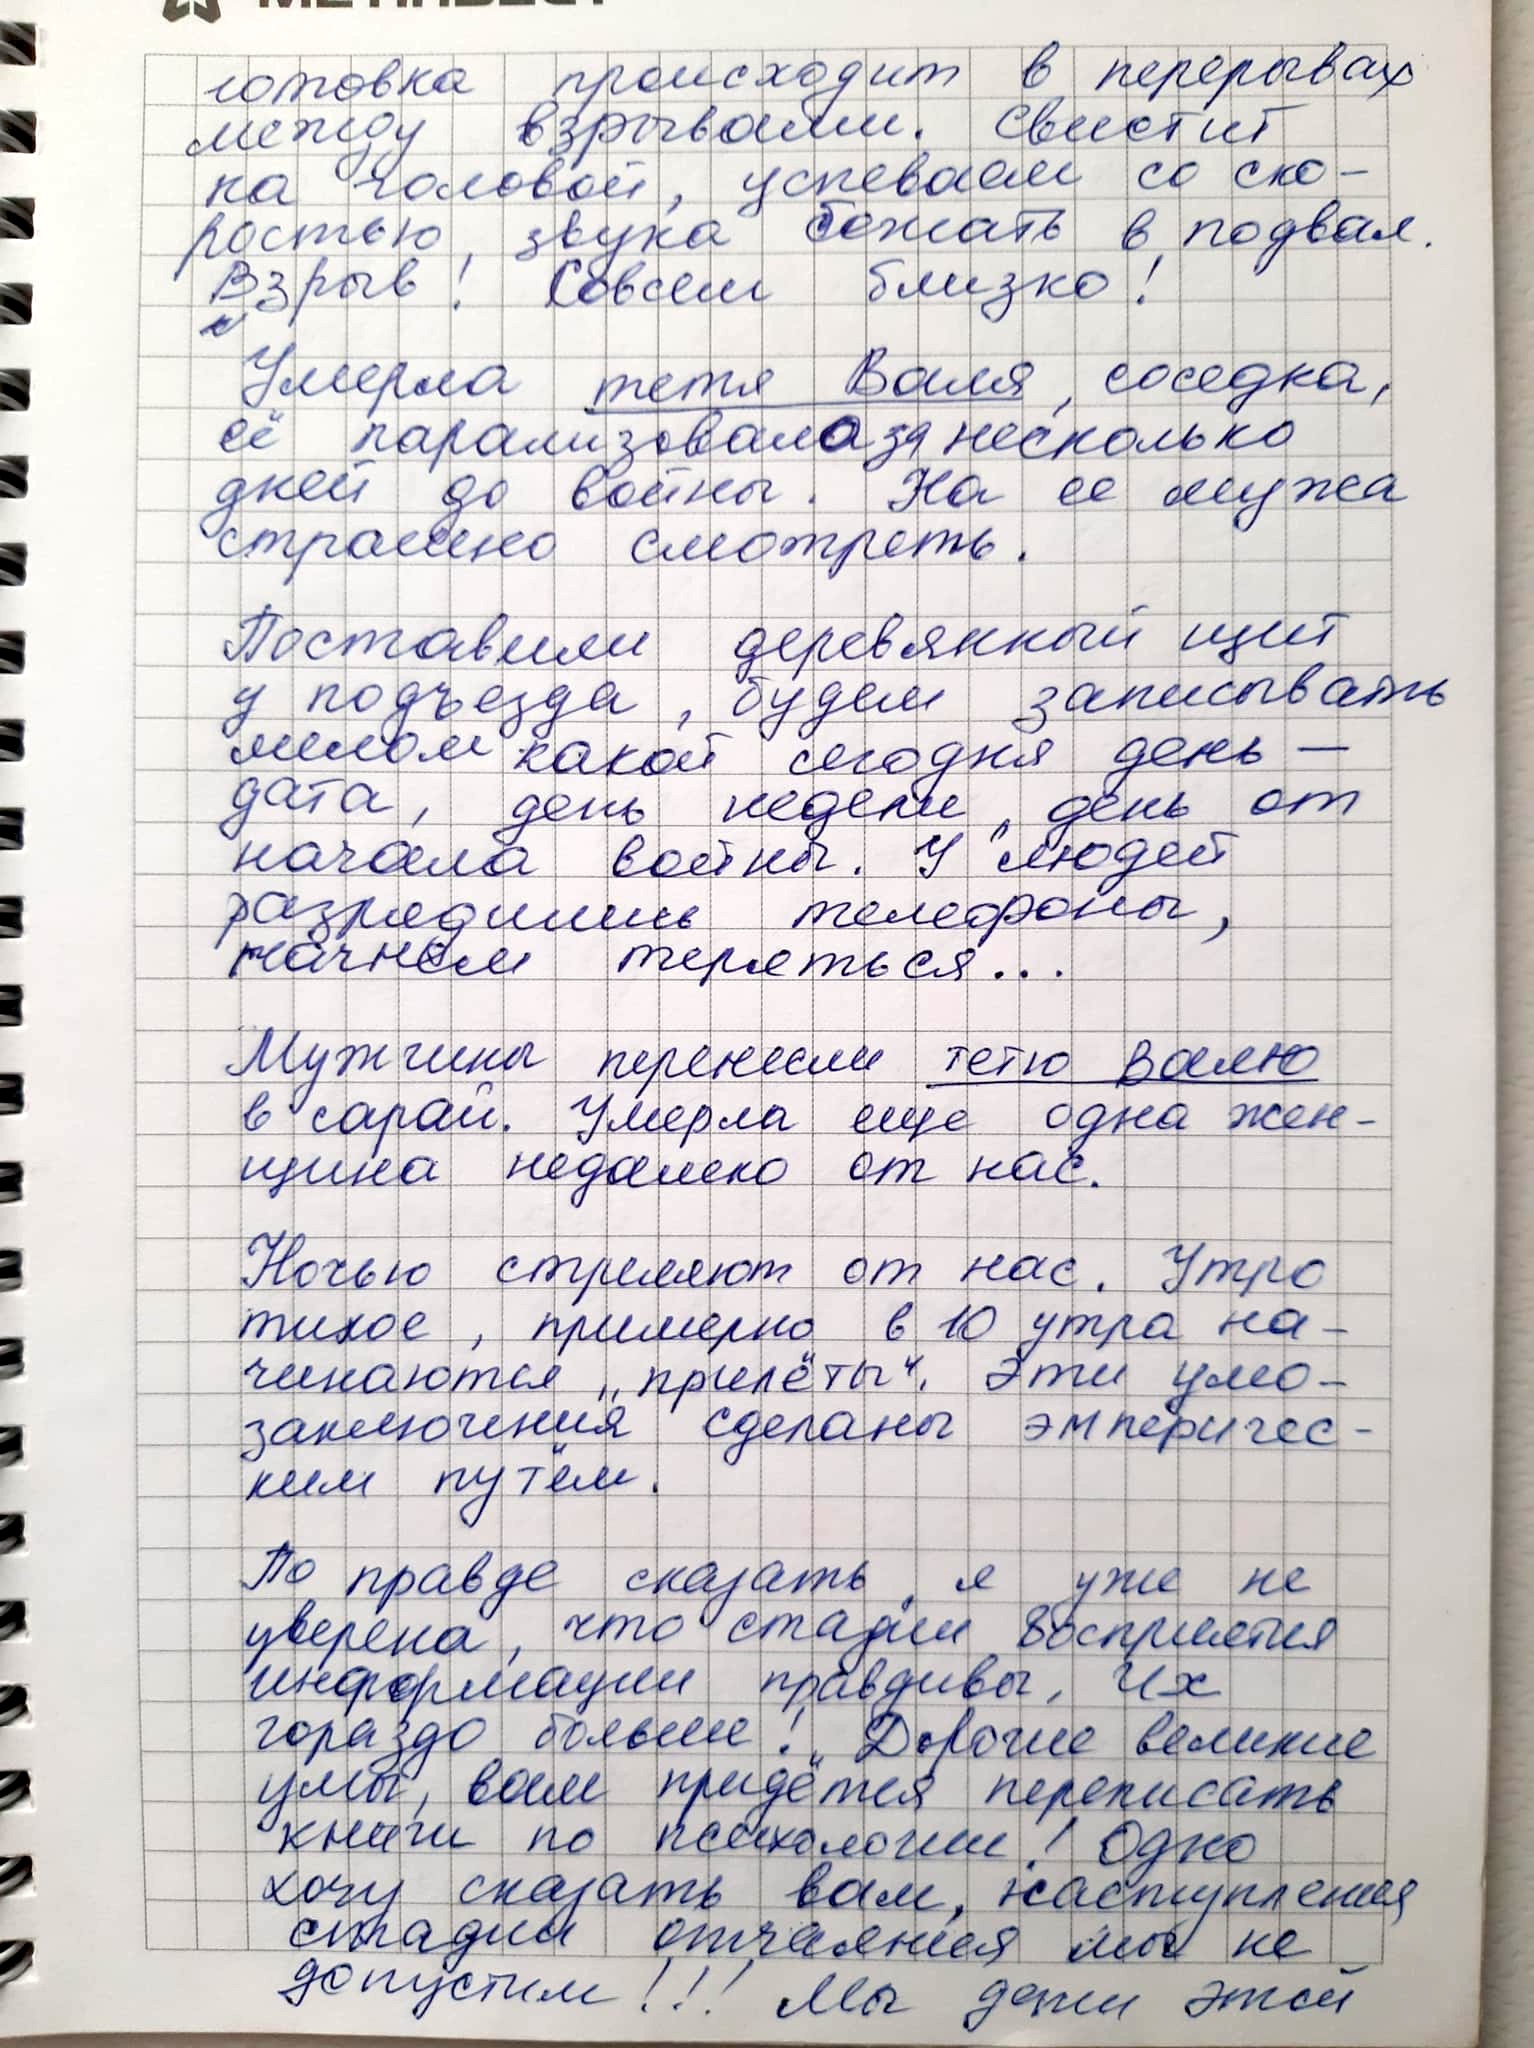 МЕТИНВЕСТ
готовка происходит в перерывах
между взрывами. Свистит
на головой, успеваем со ско-
ростью звука бежать в подвал.
Взрыв! Совсем близко!
Умерла тетя Валя, соседка,
её парализовало за несколько
дней до войны. На ее мужа
страшно смотреть.
Поставили деревянный щит
у подъезда, будем записывать
мелом какой сегодня день –
дата, день недели, день от
начала войны. У людей
разрядились телефоны,
начнем теряться...
Мужчины перенесли тетю Валю
в сарай. Умерла еще одна жен-
щина недалеко от нас.
Ночью стреляют от нас. Утро
тихое, примерно в 10 утра на-
чинаются „прилёты“. Эти умо-
заключения сделаны эмперичес-
ким путём.
По правде сказать, я уже не
уверена, что стадии восприятия
информации правдивы, их
гораздо больше! Дорогие великие
умы, вам придётся переписать
книги по психологии! Одно
хочу сказать вам, наступления
стадии отчаяния мы не
допустим!!! Мы дети этой